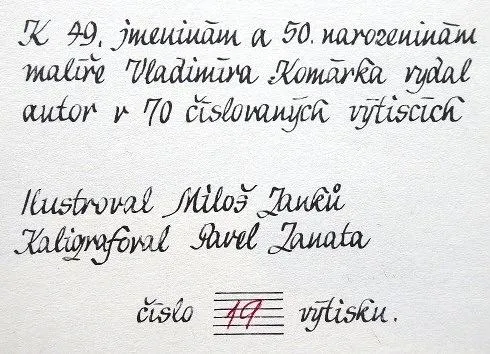 K 49. jmeninám a 50. narozeninám
malíře Vladimíra Komárka vydal
autor v 70 číslovaných výtiscích
Ilustroval Miloš Janků
Kaligrafoval Pavel Janata
číslo 19 výtisku.